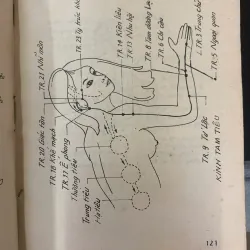 TR.21 Nhĩ môn
TR.23 Ty trúc không
TR.14 Kiên liêu
TR.13 Nhu hội
TR.8 Tam dương Lạc
TR.6 Chi câu
TR.3 Trung chử
TR.5 Ngoại quan
TR.9 Tứ Độc
KINH TAM TIÊU
TR.20 Giác tôn
TR.18 Khế mạch
TR.17 Ế phong
Thượng tiêu
Trung tiêu
Hạ tiêu
121